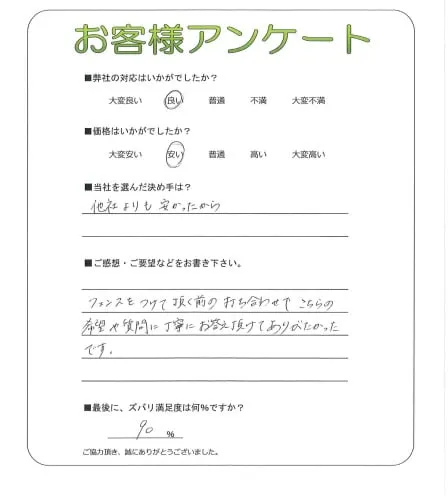 お客様アンケート
■弊社の対応はいかがでしたか?
大変良い 良い 普通 不満 大変不満
■価格はいかがでしたか?
大変安い 安い 普通 高い 大変高い
■当社を選んだ決め手は?
他社よりも安かったから
■ご感想・ご要望などをお書き下さい。
フェンスをつけて頂く前の打ち合わせでこちらの
希望や質問に丁寧にお答え頂けてありがたかった
です。
■最後に、ズバリ満足度は何%ですか?
90 %
ご協力頂き、誠にありがとうございました。